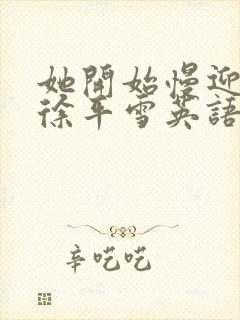 她開始慢迎
徐平雪英語
辛吃吃